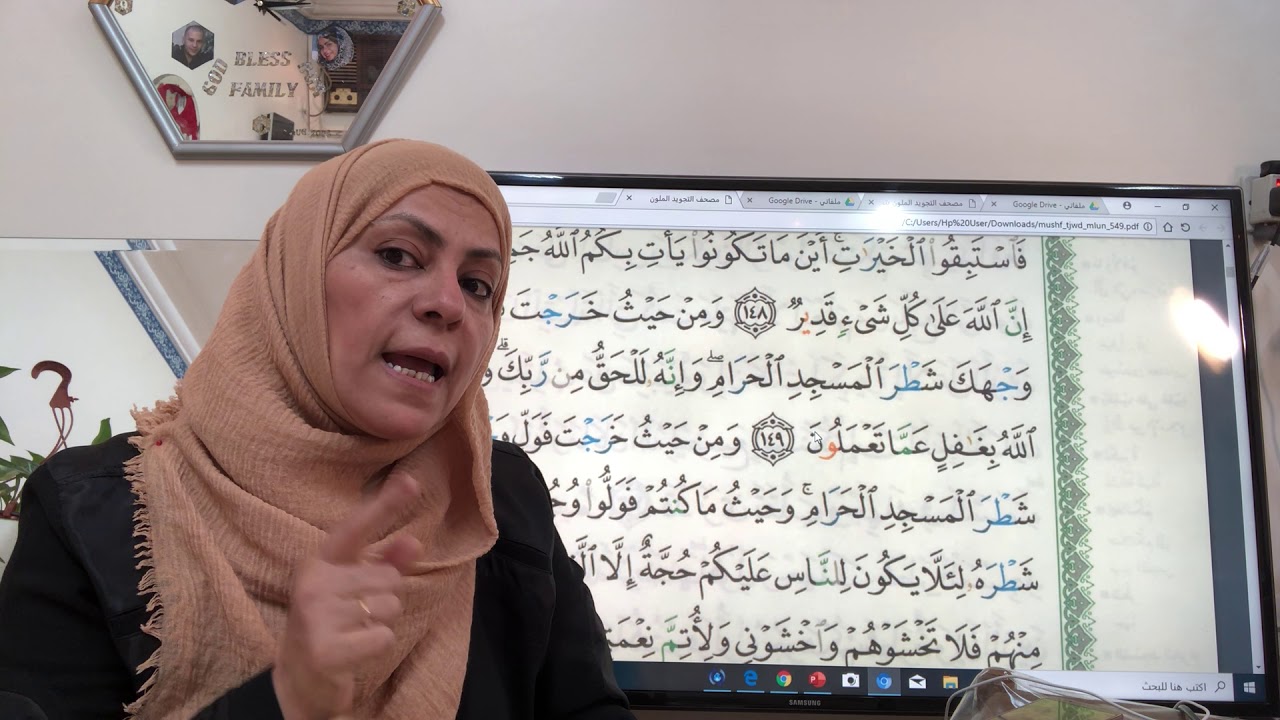 GOD BLESS
FAMILY
مصحف التجويد الملون
ملفاتي - Google Drive
مصحف التجويد الملون
ملفاتي - Google Drive
/C:/Users/Hp%20User/Downloads/mushf_tjwd_mlun_549.pdf
فَٱسْتَبِقُوا۟ ٱلْخَيْرَٰتِ ۚ أَيْنَ مَا تَكُونُوا۟ يَأْتِ بِكُمُ ٱللَّهُ
إِنَّ ٱللَّهَ عَلَىٰ كُلِّ شَىْءٍ قَدِيرٌ ١٤٨ وَمِنْ حَيْثُ خَرَجْتَ
وَجْهَكَ شَطْرَ ٱلْمَسْجِدِ ٱلْحَرَامِ ۖ وَإِنَّهُۥ لَلْحَقُّ مِن رَّبِّكَ ۗ
ٱللَّهُ بِغَٰفِلٍ عَمَّا تَعْمَلُونَ ١٤٩ وَمِنْ حَيْثُ خَرَجْتَ فَوَلِّ
شَطْرَ ٱلْمَسْجِدِ ٱلْحَرَامِ ۚ وَحَيْثُ مَا كُنتُمْ فَوَلُّوا۟
شَطْرَهُۥ لِئَلَّا يَكُونَ لِلنَّاسِ عَلَيْكُمْ حُجَّةٌ إِلَّا
مِنْهُمْ فَلَا تَخْشَوْهُمْ وَٱخْشَوْنِى وَلِأُتِمَّ
اكتب هنا للبحث
SAMSUNG